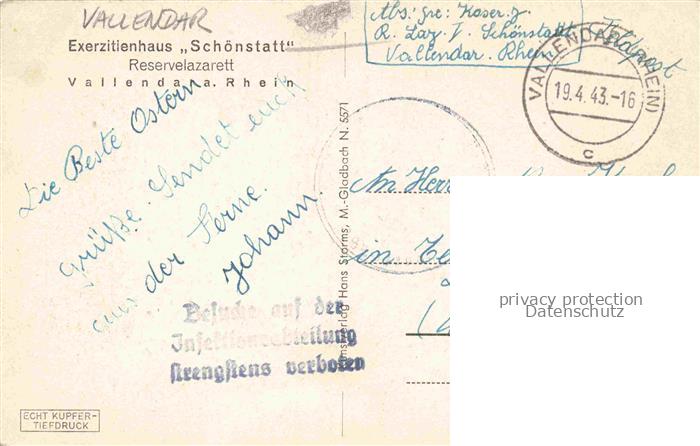 VALLENDAR
Exerzitienhaus „Schönstatt"
Reservelazarett
Vallendar a. Rhein
Die Beste Ostern
grüße. Sendet euch
aus der Ferne.
Johann.
Besuche auf der
Infektionsabteilung
strengstens verboten
ECHT KUPFER-
TIEFDRUCK
Kunstverlag Hans Storms, M.-Gladbach N. 5571
Abs: gre: Kaser. J.
R. Laz. V. Schönstatt
Vallendar. Rhein
Feldpost
VALLENDAR (RHEIN)
19.4.43.-16
c
An Herr
in
privacy protection
Datenschutz